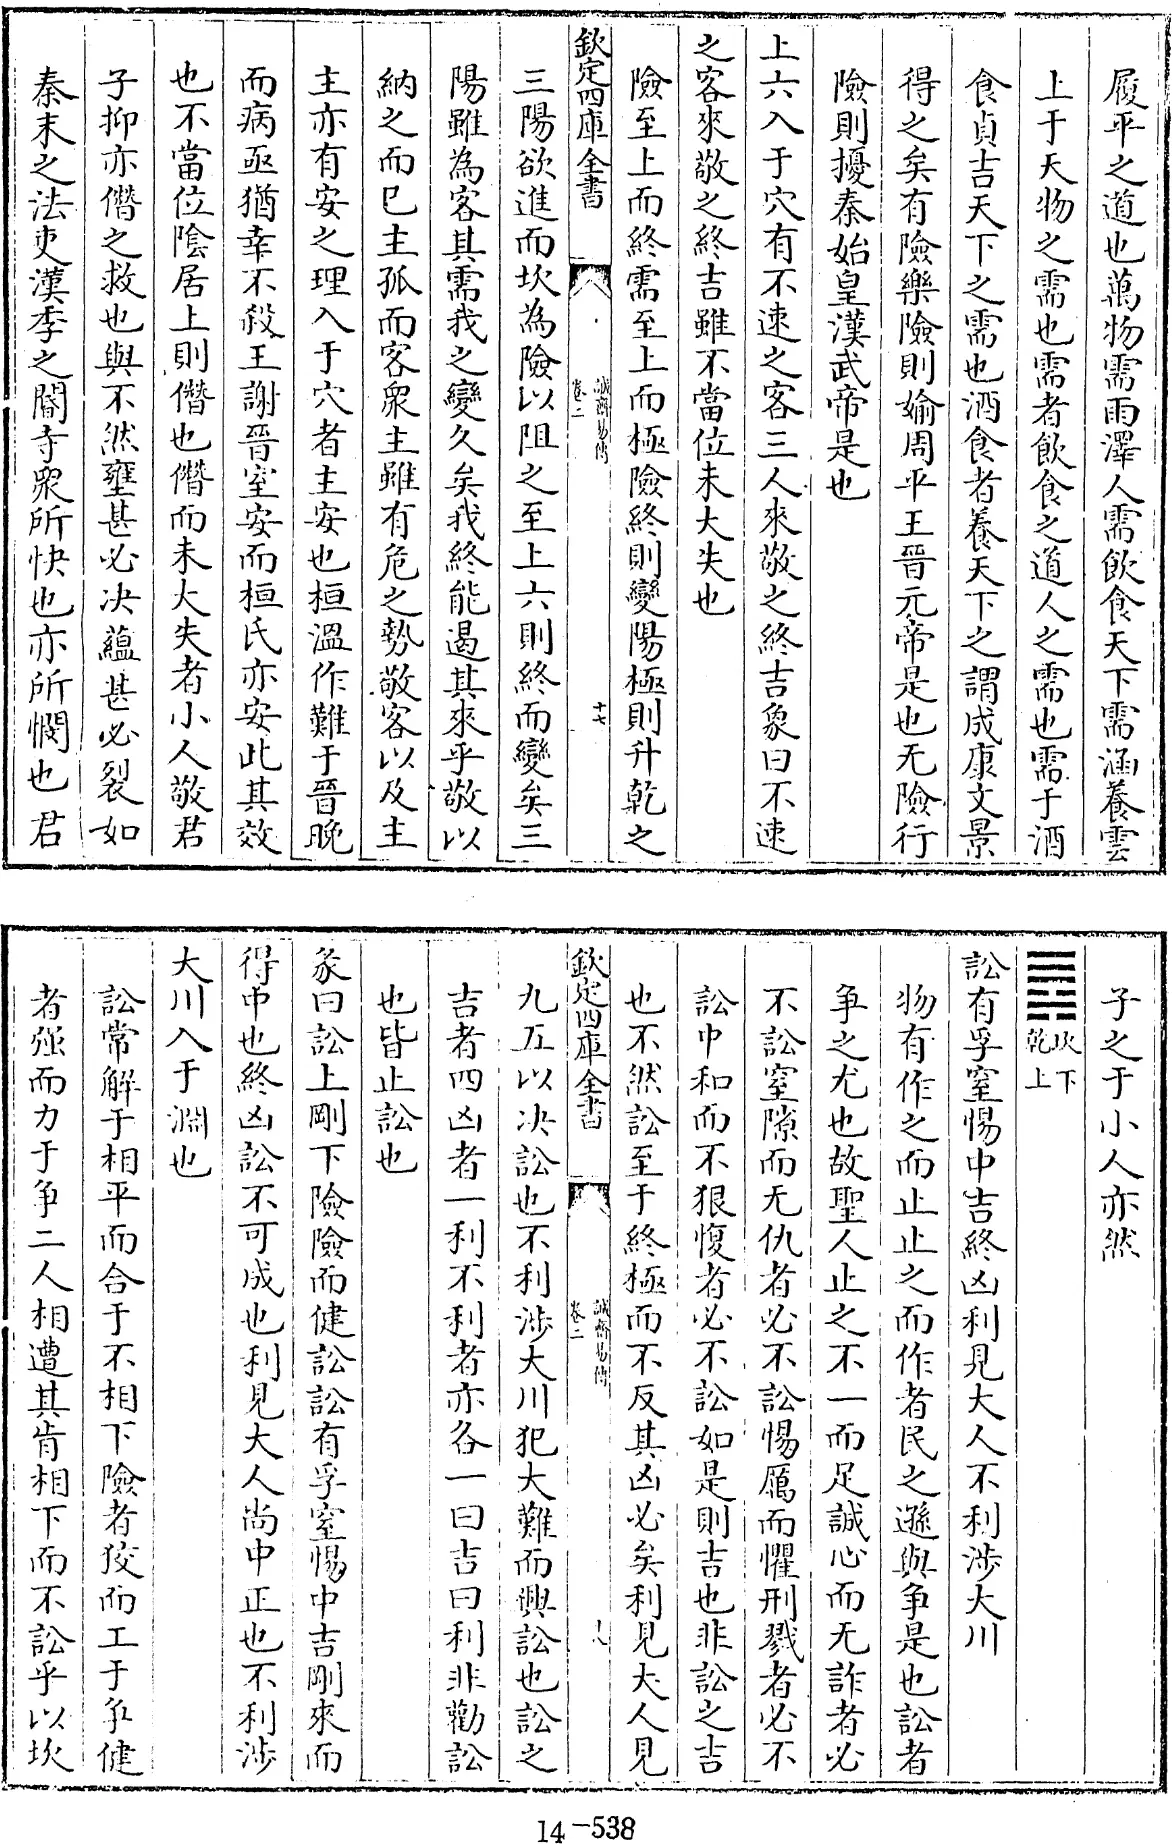 履平之道也萬物需雨澤人需飲食天下需涵養雲
上于天物之需也需者飲食之道人之需也需于酒
食貞吉天下之需也酒食者養天下之謂成康文景
得之矣有險樂險則媮周平王晉元帝是也无險行
險則擾秦始皇漢武帝是也
上六入于穴有不速之客三人來敬之終吉象曰不速
之客來敬之終吉雖不當位未大失也
險至上而終需至上而極險終則變陽極則升乾之
欽定四庫全書
誠齋易傳
卷二
十七
三陽欲進而坎為險以阻之至上六則終而變矣三
陽雖為客其需我之變久矣我終能遏其來乎敬以
納之而已主孤而客衆主雖有危之勢敬客以及主
主亦有安之理入于穴者主安也桓溫作難于晉晚
而病亟猶幸不殺王謝晉室安而桓氏亦安此其效
也不當位陰居上則僭也僭而未大失者小人敬君
子抑亦僭之救也與不然壅甚必决蘊甚必裂如
秦末之法吏漢季之閹寺衆所快也亦所憫也君
子之于小人亦然
䷅
坎下
乾上
訟有孚窒惕中吉終凶利見大人不利涉大川
物有作之而止止之而作者民之遜與爭是也訟者
争之尤也故聖人止之不一而足誠心而无詐者必
不訟窒隙而无仇者必不訟惕厲而懼刑戮者必不
訟中和而不狠愎者必不訟如是則吉也非訟之吉
也不然訟至于終極而不反其凶必矣利見大人見
欽定四庫全書
誠齋易傳
卷二
十八
九五以决訟也不利涉大川犯大難而興訟也訟之
吉者四凶者一利不利者亦各一曰吉曰利非勸訟
也皆止訟也
彖曰訟上剛下險險而健訟訟有孚窒惕中吉剛來而
得中也終凶訟不可成也利見大人尚中正也不利涉
大川入于淵也
訟常解于相平而合于不相下險者狡而工于爭健
者强而力于爭二人相遭其肯相下而不訟乎以坎
14-538